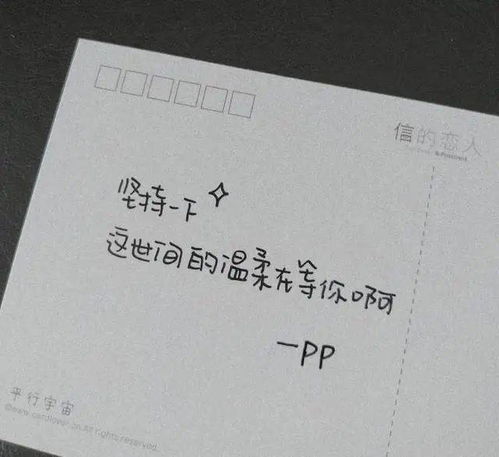 信的恋人
坚持一下
这世间的温柔在等你啊
一PP
平行宇宙
©www.cardlover.cn.All rights reserved.